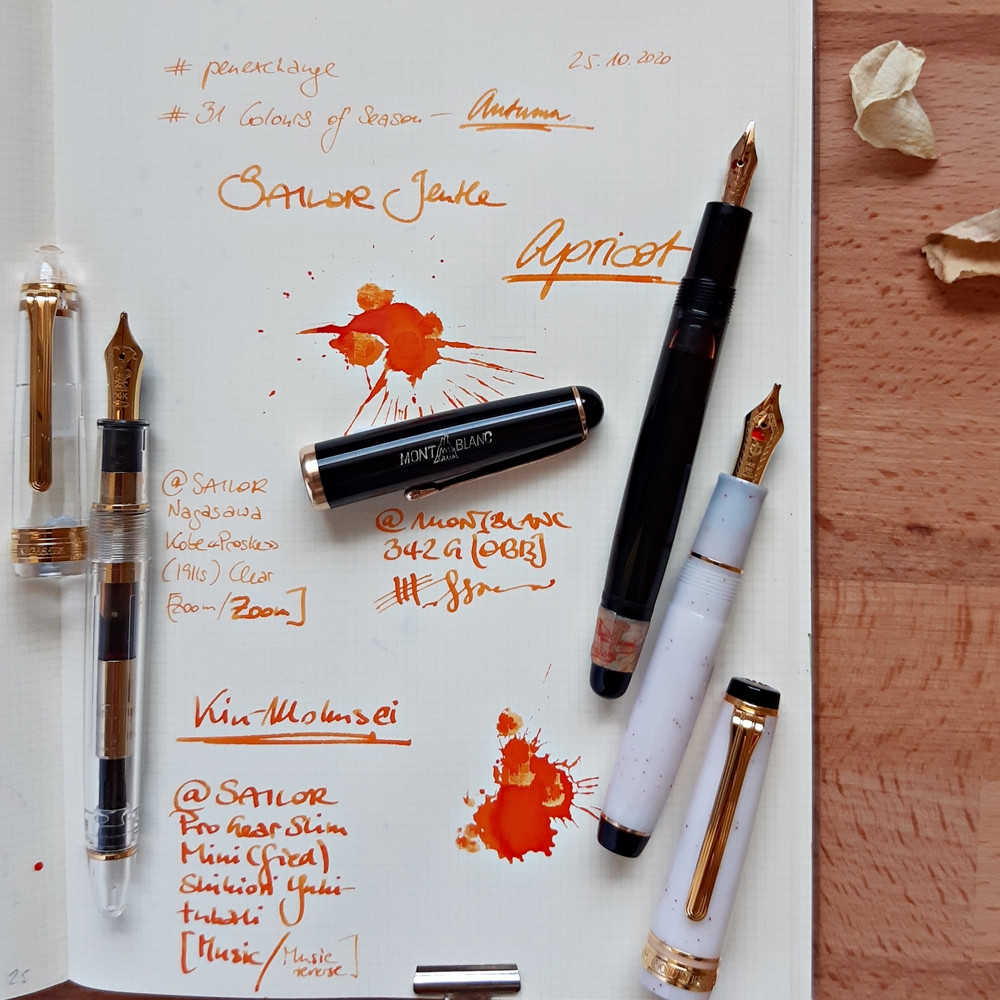 # penexchange
25.10.2020
# 31 Colours of Season – Autumn
SAILOR Jentle
Apricot
MONT BLANC
@ SAILOR
Nagasawa
(1911s) Clear
[Zoom/Zoom]
@ MONTBLANC
342 G [OBB]
Kin-Mokusei
@ SAILOR
Pro Gear Slim
Mini (fied)
Shikiori Yuki-
tubaki
[Music/Music
reverse]
25